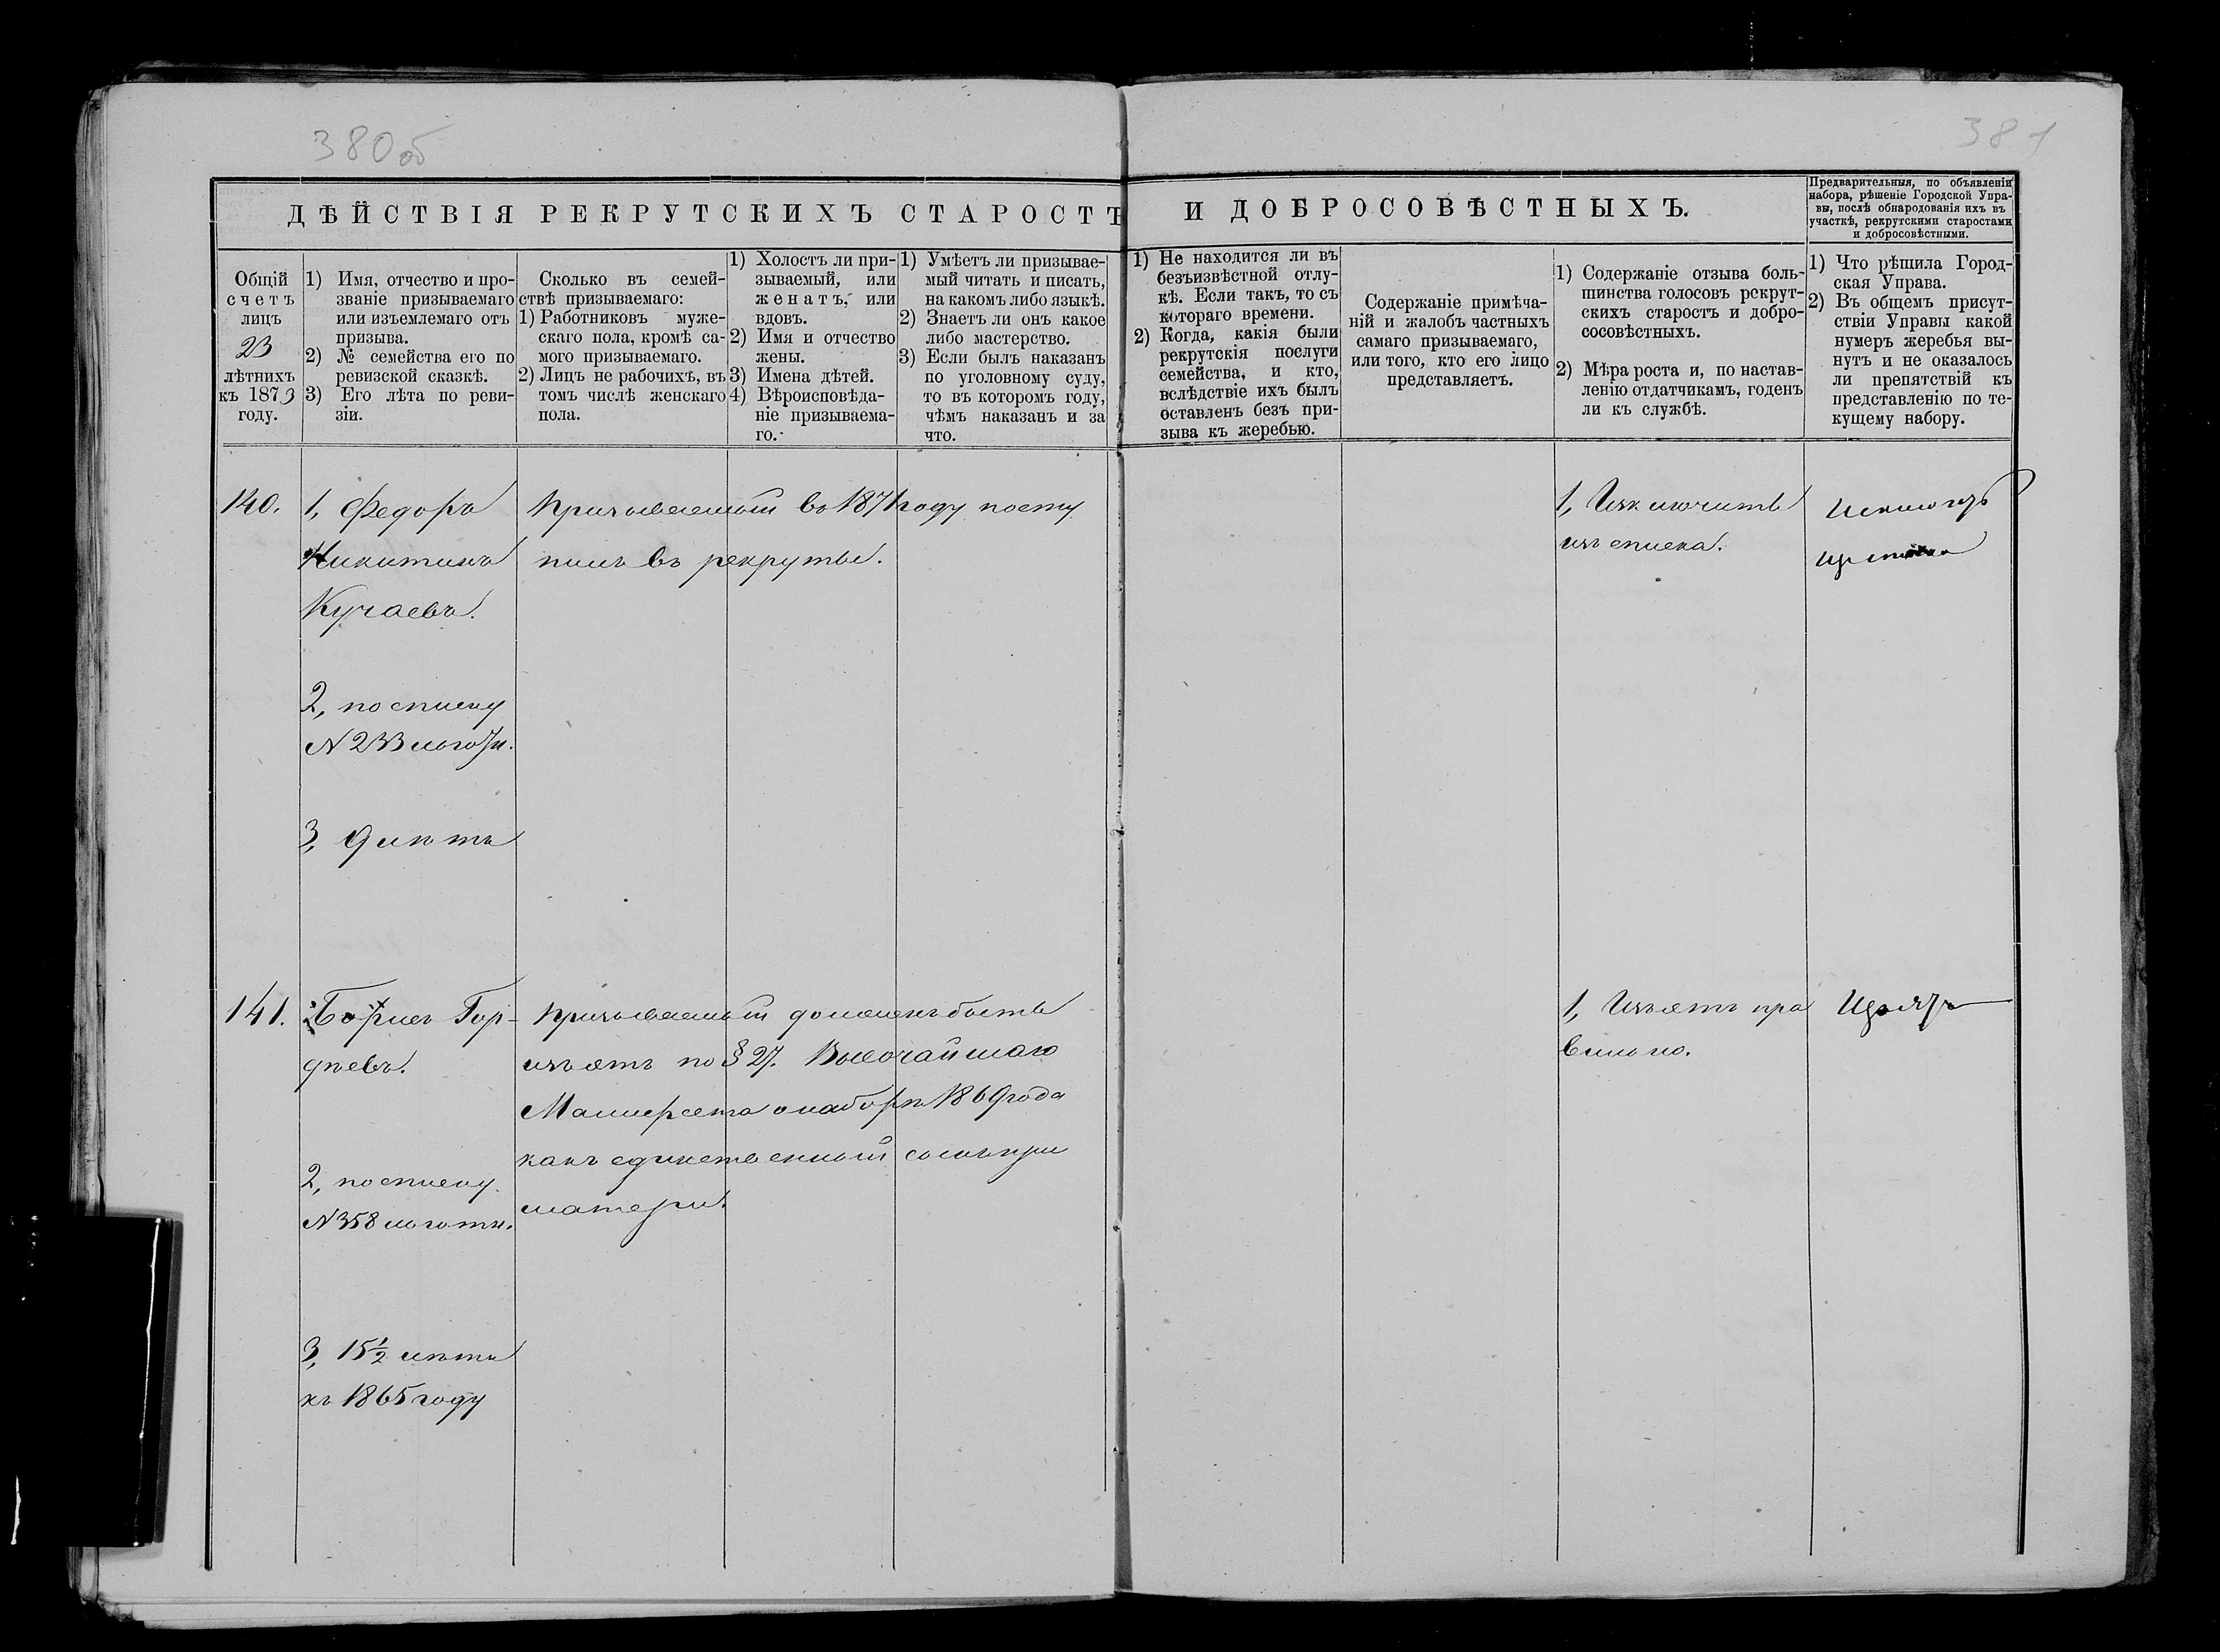 380 об
381
ДѢЙСТВІЯ РЕКРУТСКИХЪ СТАРОСТЪ И ДОБРОСОВѢСТНЫХЪ.
Предварительныя, по объявленіи
набора, рѣшеніе Городской Упра-
вы, послѣ обнародованія ихъ въ
участкѣ, рекрутскими старостами
и добросовѣстными.
Общій
счетъ
лицъ
23
лѣтнихъ
къ 1873
году.
1) Имя, отчество и про-
званіе призываемаго
или изъемлемаго отъ
призыва.
2) № семейства его по
ревизской сказкѣ.
3) Его лѣта по реви-
зіи.
Сколько въ семей-
ствѣ призываемаго:
1) Работниковъ муже-
скаго пола, кромѣ са-
мого призываемаго.
2) Лицъ не рабочихъ, въ
томъ числѣ женскаго
пола.
1) Холостъ ли при-
зываемый, или
женатъ, или
вдовъ.
2) Имя и отчество
жены.
3) Имена дѣтей.
4) Вѣроисповѣда-
ніе призываема-
го.
1) Умѣетъ ли призывае-
мый читать и писать,
на какомъ либо языкѣ.
2) Знаетъ ли онъ какое
либо мастерство.
3) Если былъ наказанъ
по уголовному суду,
то въ которомъ году,
чѣмъ наказанъ и за
что.
1) Не находится ли въ
безъизвѣстной отлу-
кѣ. Если такъ, то съ
котораго времени.
2) Когда, какія были
рекрутскія послуги
семейства, и кто,
вслѣдствіе ихъ былъ
оставленъ безъ при-
зыва къ жеребью.
Содержаніе примѣча-
ній и жалобъ частныхъ
самаго призываемаго,
или того, кто его лицо
представляетъ.
1) Содержаніе отзыва боль-
шинства голосовъ рекрут-
скихъ старостъ и добро-
сосовѣстныхъ.
2) Мѣра роста и, по настав-
ленію отдатчикамъ, годенъ
ли къ службѣ.
1) Что рѣшила Город-
ская Управа.
2) Въ общемъ присут-
ствіи Управы какой
нумеръ жеребья вы-
нутъ и не оказалось
ли препятствій къ
представленію по те-
кущему набору.
140.
1, Федоръ
Никитинъ
Кучаевъ.
2, по списку
N 233 льготн.
3, 9 лѣтъ
Призываемый въ 1871 году посту
пилъ въ рекруты.
1, Исключить
изъ списка.
Исключ
из списка
141.
Борисъ Гор-
дѣевъ.
2, по списку
N 358 льготн.
3, 15 1/2 лѣтъ
къ 1865 году
Призываемый долженъ быть
изъятъ по § 27. Высочайшаго
Манифеста о наборѣ 1869 года
какъ единственный сынъ при
матери.
1, Изъятъ пра
вильно.
Изъять